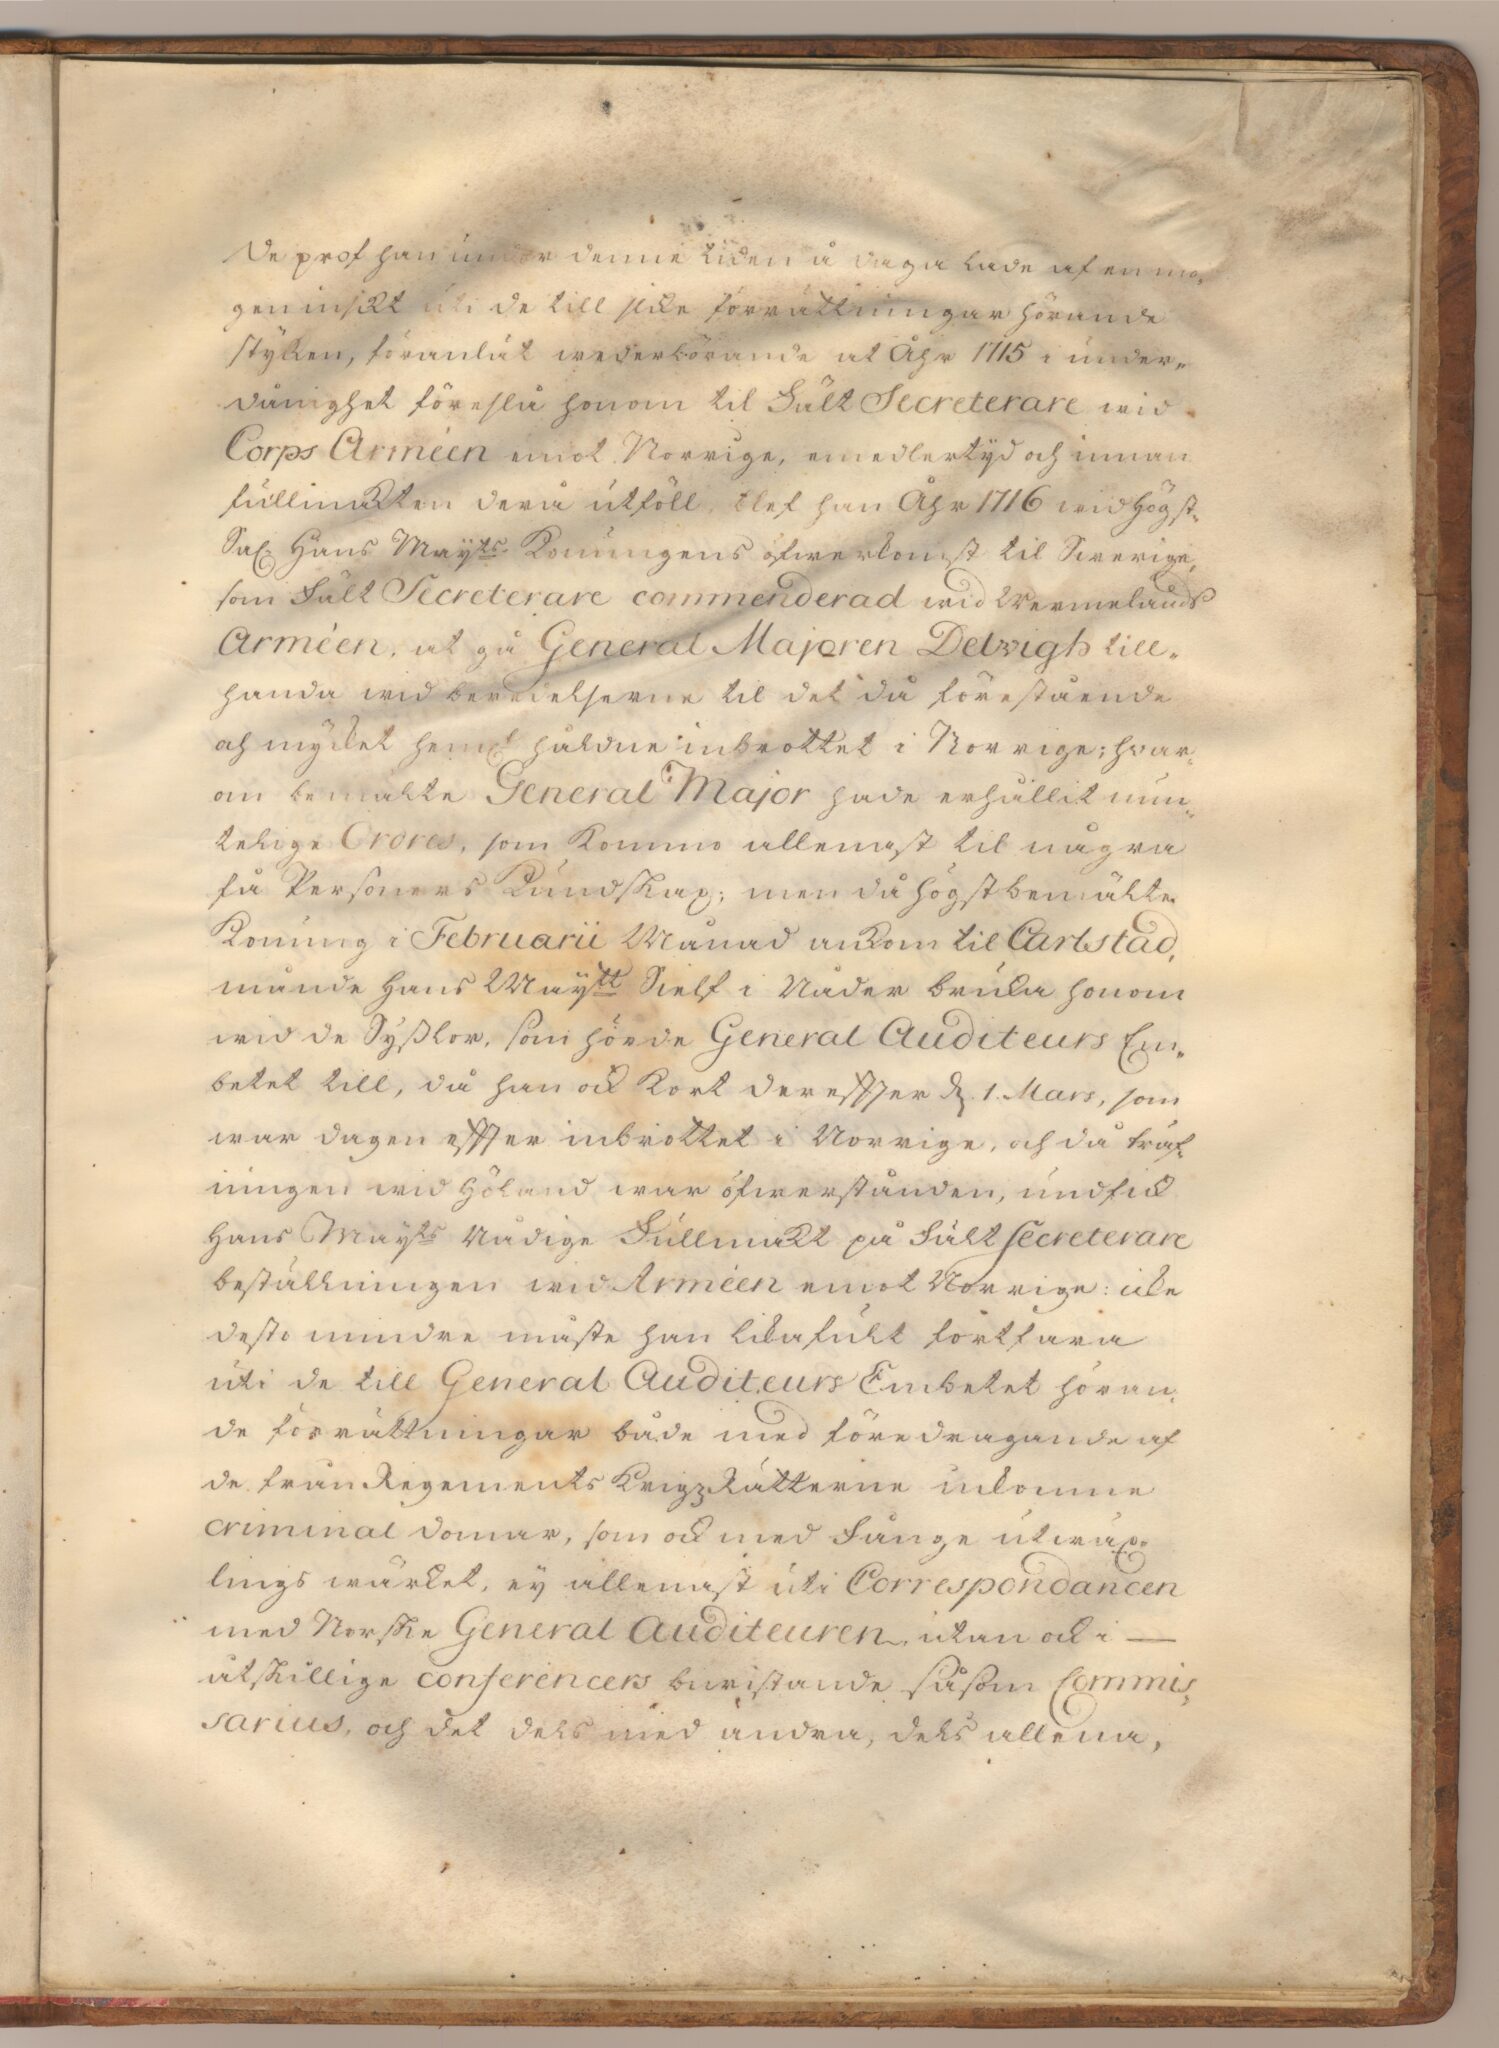 De prof han under denne tiden å daga lade af en mo-
gen insikt uti de till slike förrättningar hörande
stycken, föranlät wederbörande at Åhr 1715 i under-
dånighet föreslå honom til Fält Secreterare wid
Corps Arméen emot Norrige, emedlertyd och innan
fullmakten derå utföll, blef han Åhr 1716 wid Högst-
Sal. Hans Mayts Konungens öfwerkomst til Swerige,
som Fält Secreterare commenderad wid Wermelands
Arméen, at gå General Majoren Delwigh till-
handa wid beredelserne til det då förestående
och mycket hemligt håldne inbrottet i Norrige; hwar-
om bemälte General Major hade erhållit mun-
telige Ordres, som kommo allenast til några
få Personers kundskap; men då högstbemälte
Konung i Februarii Månad ankom til Carlstad,
månde Hans Maytt Sielf i Nåder bruka honom
wid de Sysslor, som hörde General Auditeurs Em-
betet till, då han ock kort derefter d. 1. Mars, som
war dagen efter inbrottet i Norrige, och då träf-
ningen wid Höland war öfwerstånden, undfick
Hans Mayts Nådige Fullmakt på Fält Secreterare
beställningen wid Arméen emot Norrige: icke
desto mindre måste han likafult fortfara
uti de till General Auditeurs Embetet höran-
de förrättningar både med föredragande af
de från Regements Krigz Rätterne inkomne
criminal domar, som ock med Fånge utwäx-
lings wärket, ey allenast uti Correspondancen
med Norske General Auditeuren, utan ock i —
åtskillige conferencers bewistande såsom Commis-
sarius, och det dels med andra, dels allena,